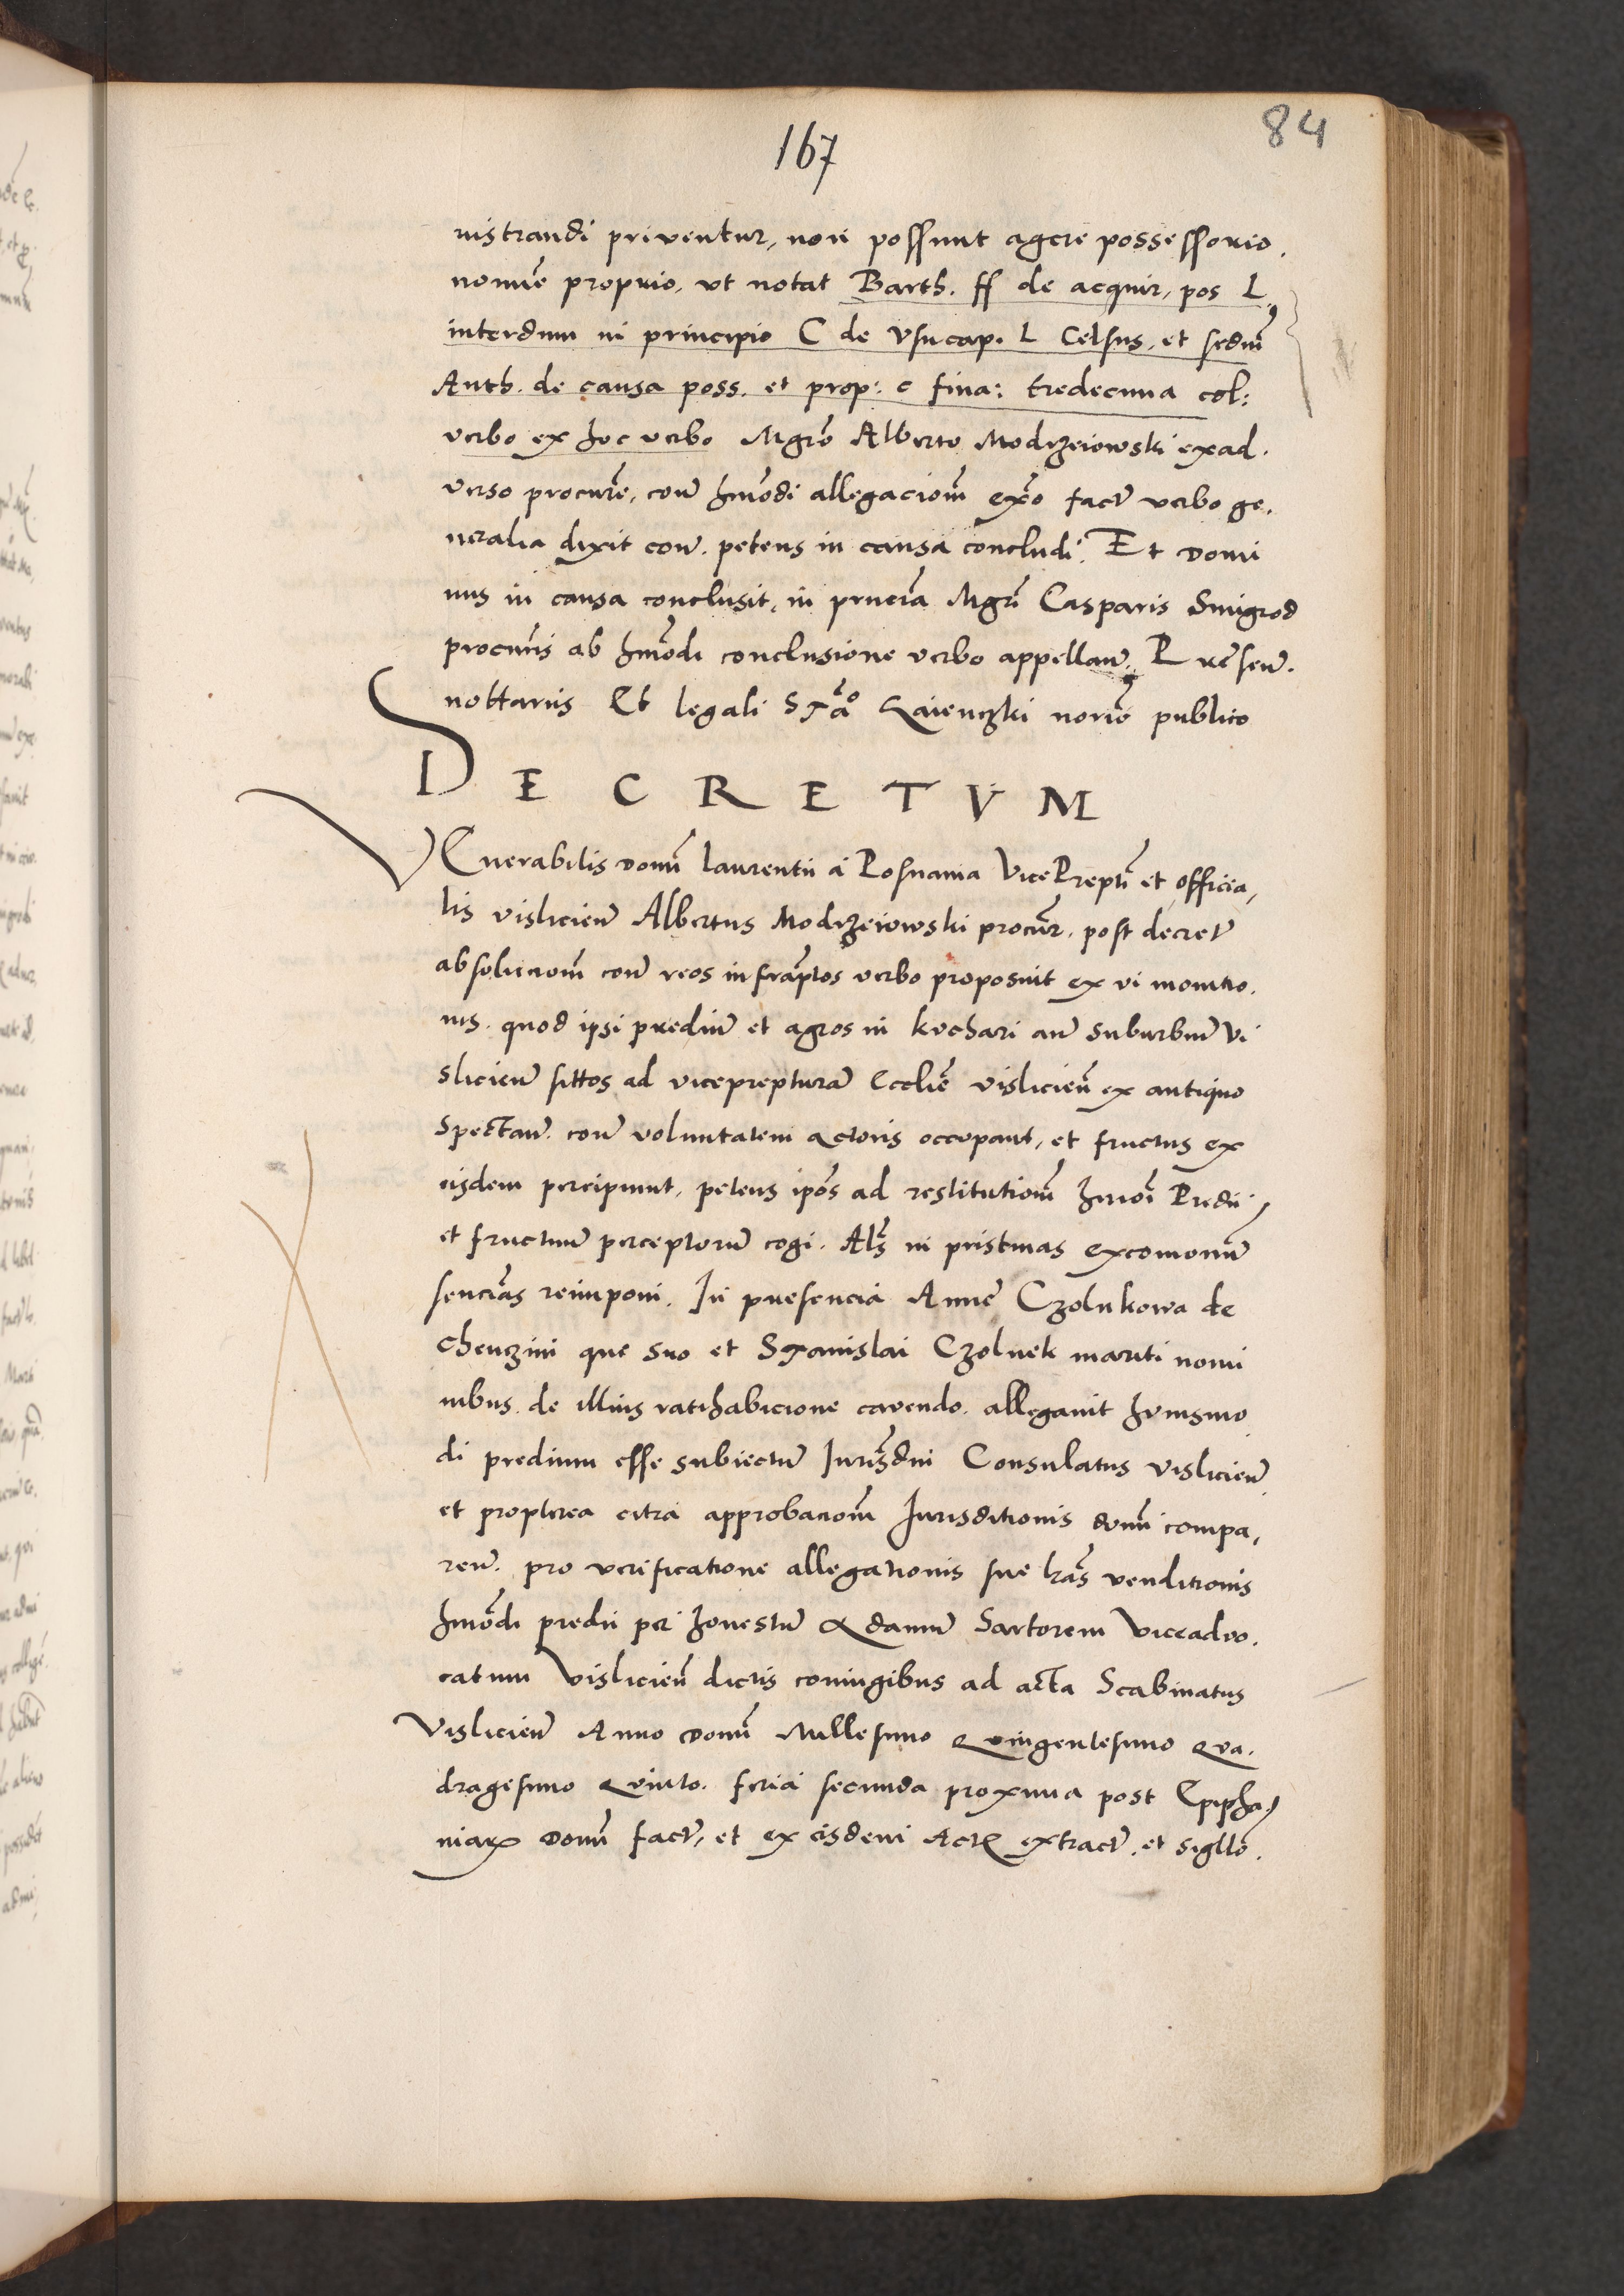 167
84
nistrandi priventur, non possunt agere possessorio.
nomīe proprio, ut notat Barth. ff de acquir, pos L
interdum in principio C de Vsucap. L Celsus, et sedm̄
Auth. de causa poss. et prop: c fina: tredecima col:
verbo ex hoc verbo Mgrō Alberto Modrzeiowski ex ad.
verso procurē, con̄ hmōdi allegacionm̄ exnō fact̄ verbo ge.
neralia dixit con̄. petens in causa concludi. Et Domi
nus in causa conclusit, in pn̄cia Mgrī Casparis Smigrod
procur̄is ab hmōdi conclusione verbo appellan̄. Presen̄.
nottariis Et legali Stāo Zaienczki noriē publico
DECRETVM
VEnerabilis Domī Laurentii a Posnania VicePreptī et officia,
lis vislicien̄ Albertus Modrzeiowski procur̄. post decret̄
absolucionm̄ con̄ reos infraptos verbo proposuit ex vi monitio.
nis. quod ipsi prediū et agros in kuchari an̄ suburbiū Vi
slicien̄ sittos ad viceprepturā Ecclīe vislicien̄ ex antiquo
Spectan̄. con̄ voluntatem actoris occupant, et fructus ex
eisdem percipiunt, petens ipōs ad restitutionm̄ hmoī Predii
et fructuū perceptorū cogi. Alš in pristinas excomonū
senciās reimponi. In presencia Anne Czolnkowa de
Chenczini que suo et Stanislai Czolnek mariti nomi
nibus. de illius ratihabicione cavendo. allegavit huiusmo
di predium esse subiectū Jurisdni Consulatus vislicien̄
et propterea citra approbacionm̄ Jurisditionis domī compa,
ren̄. pro verificatione allegationis sue lrās venditionis
hmōdi predii per honestū Adamū Sartorem Viceadvo.
catum Vislicien̄ dictis coniugibus ad acta Scabinatus
Vislicien̄ Anno Domī Millesimo Quingentesimo Qua.
dragesimo Quinto. feria secunda proxima post Epipha
niarum Domī fact̄, et ex eisdem Actis extract̄. et sigillo.